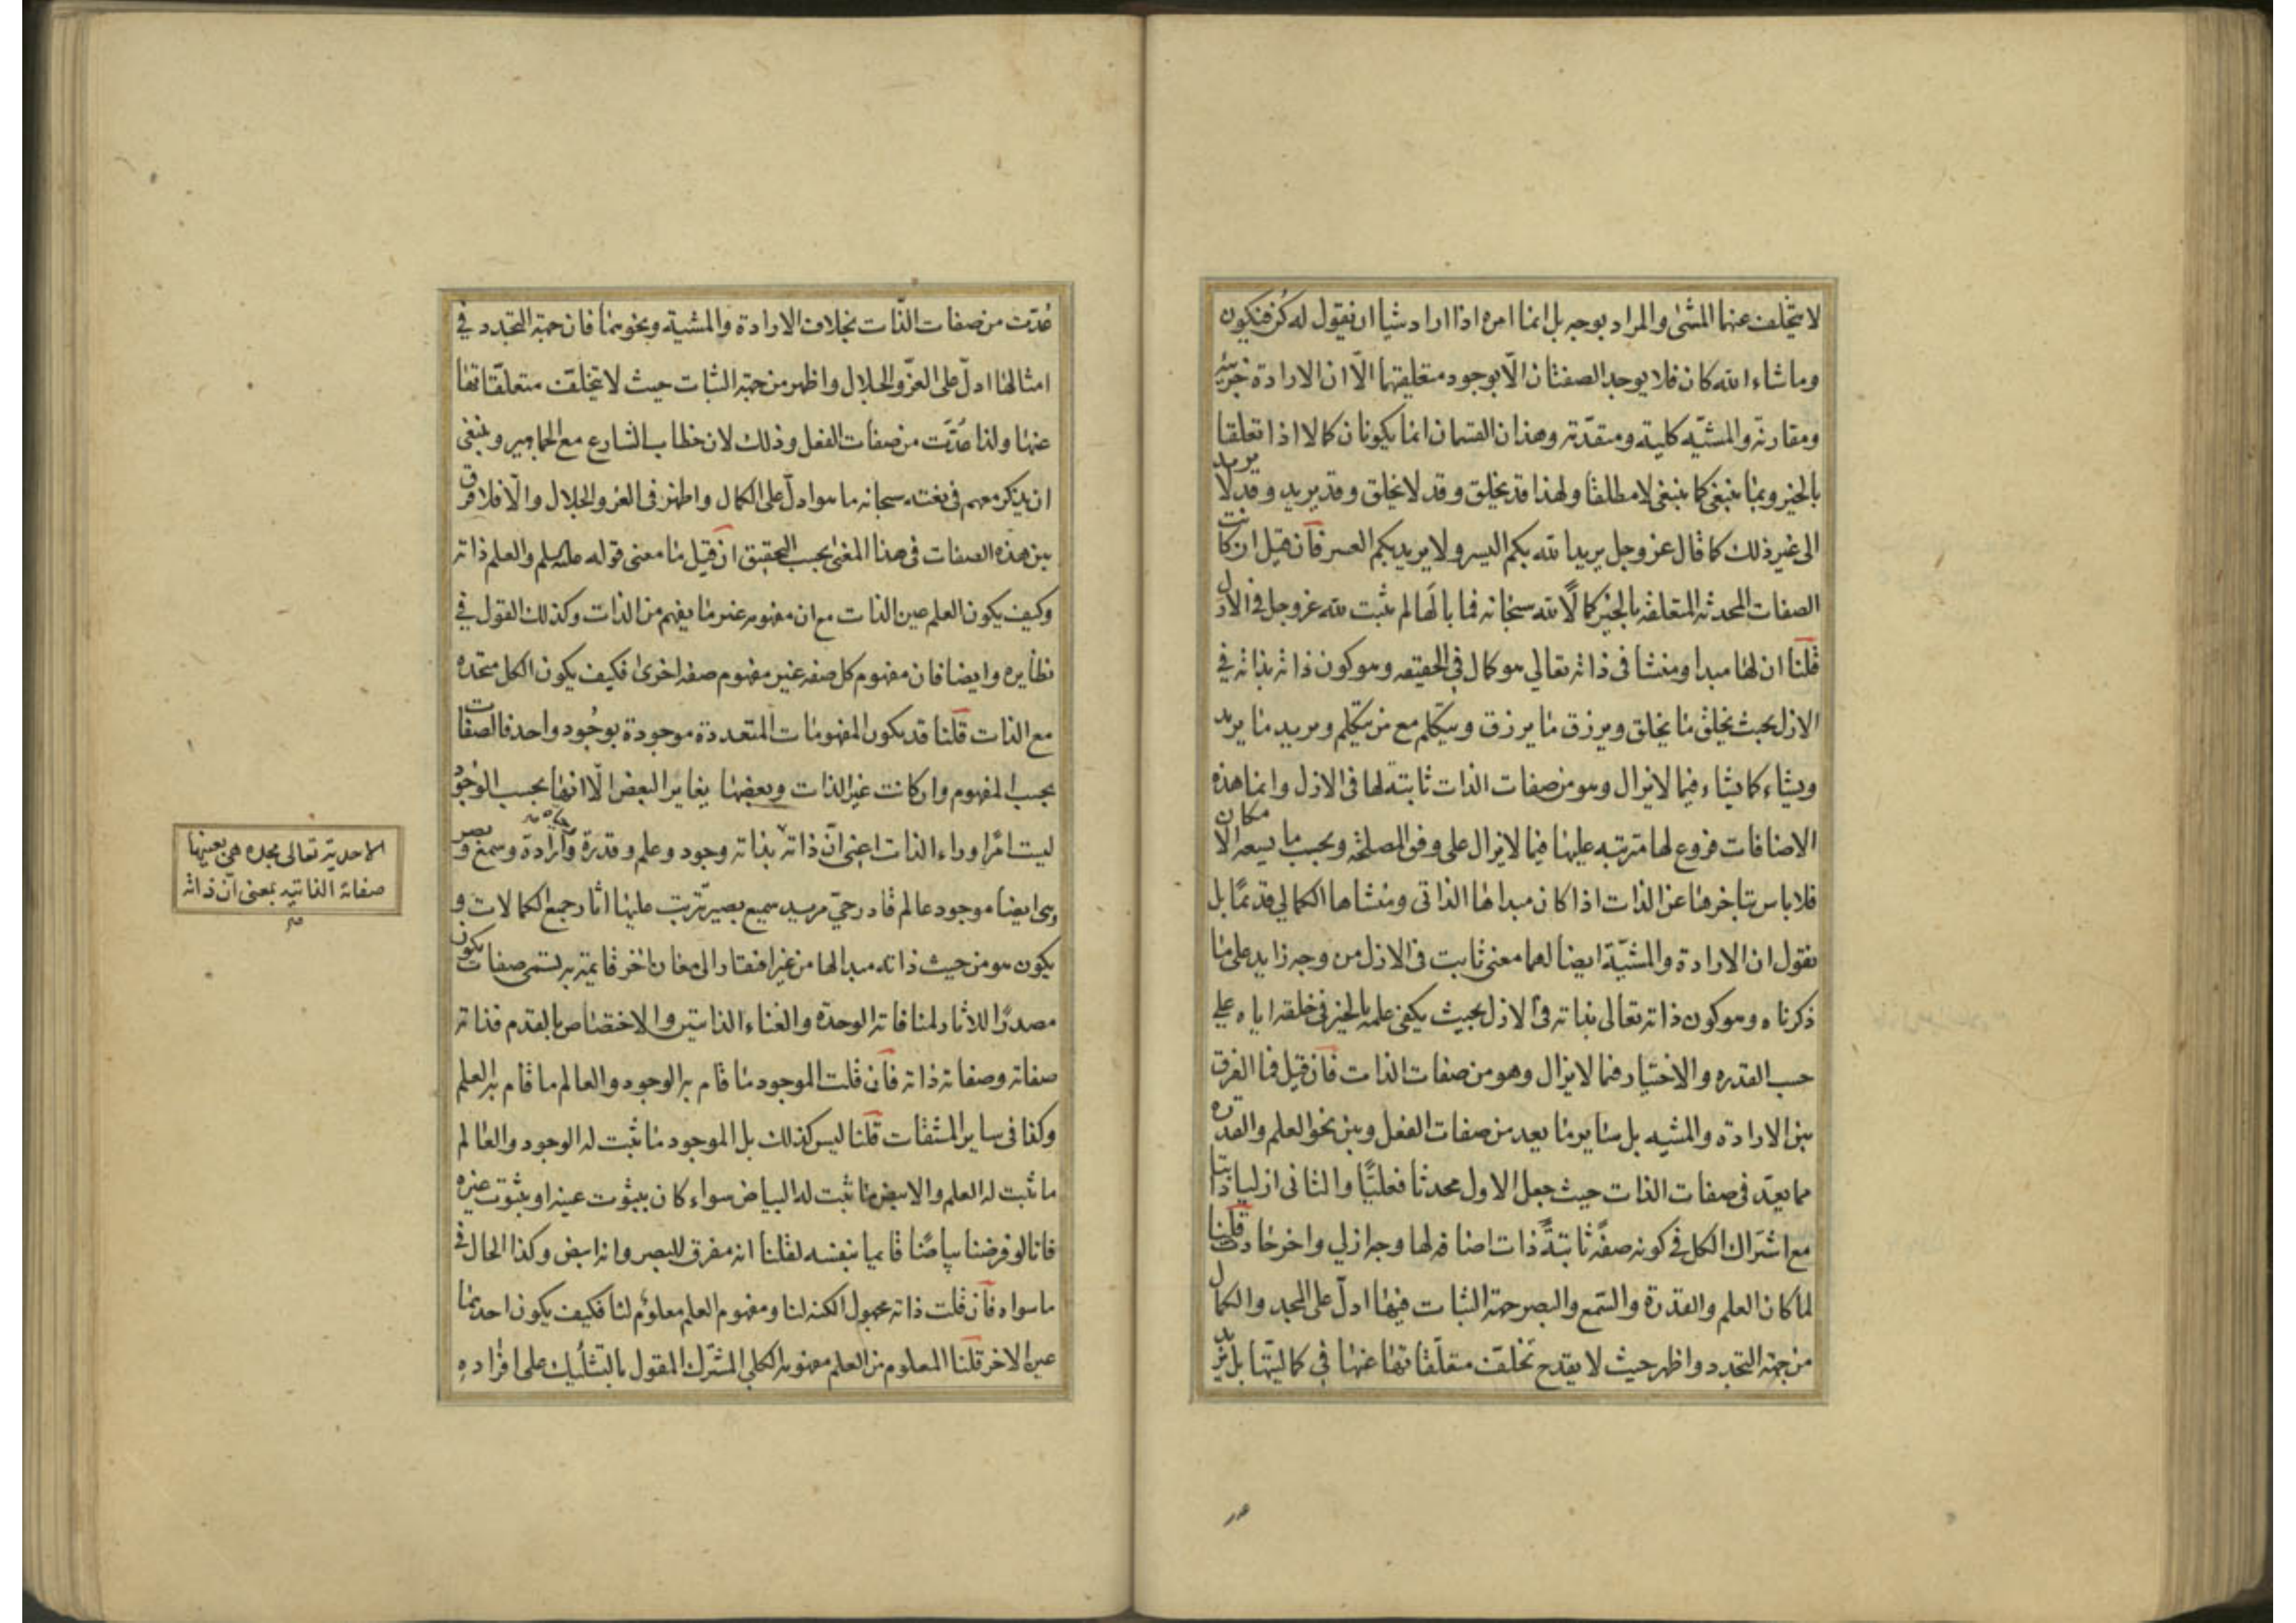 لا يتخلف عنهما المشئ والمراد بوجه بل انما امره اذا اراد شيئا ان نقول له كن فيكون
وما شاء الله كان فلا يوجد الصفتان الّا بوجود متعلقيهما الّا ان الارادة جزئيّة
ومقارنة والمشيّه كلية ومتقدّمة وهذان القسمان انما يكونان كمالا اذا تعلقا
بالخير وبما ينبغى كما ينبغى لا مطلقا ولهذا قد يخلق وقد لا يخلق وقد يريد وقد لا يريد
الى غير ذلك كما قال عز وجل يريد الله بكم اليسر ولا يريد بكم العسر فان قيل ان كانت
الصفات المحدثه المتعلقه بالخير كمالًا لله سبحانه فما بالها لم تثبت لله عز وجل فى الازل
قلنا ان لها مبدا ومنشا فى ذاته تعالى هو كمال فى الحقيقه وهو كون ذاته بذاته فى
الازل بحيث يخلق ما يخلق ويرزق ما يرزق ويتكلم مع من يتكلم ويريد ما يريد
ويشاء كما يشاء فيما لا يزال وهو من صفات الذات ثابتة لها فى الازل وانما هذه
الاضافات فروع لها مترتبه عليها فيما لا يزال على وفق المصلحه وبحسب ما يسعه الامكان
فلا باس بتاخرها عن الذات اذا كان مبداها الذاتى ومنشاها الكمالي قديمًا بل
نقول ان الارادة والمشيّة ايضا لهما معنى ثابت فى الازل من وجه زايد على ما
ذكرناه وهو كون ذاته تعالى بذاته فى الازل بحيث يكفى علمه بالخير فى خلقه اياه على
حسب القدره والاختيار فيما لا يزال وهو من صفات الذات فان قيل فما الفرق
بين الارادة والمشيه بل ساير ما يعد من صفات الفعل وبين نحو العلم والقدرة
مما يعدّ فى صفات الذات حيث جعل الاول محدثا فعليًّا والثانى ازليا ذاتيا
مع اشتراك الكل فى كونه صفةً ثابتةً ذات اضافه لها وجه ازلي واخر حادث قلنا
لما كان العلم والقدرة والسّمع والبصر جهة الثبات فيها ادلّ على المجد والكمال
من جهة التجدد واظهر حيث لا يقدح تخلّف متعلّقاتها عنها فى كماليّتها بل تزيد
عُدّت من صفات الذّات بخلاف الارادة والمشية ونحوهما فان جهة التجدد فى
امثالها ادلّ على العزّ والجلال واظهر من جهة الثبات حيث لا تتخلّف متعلّقاتها
عنها ولذا عُدّت من صفات الفعل وذلك لان خطاب الشارع مع الجماهير وينبغى
ان يذكر معهم فى نعته سبحانه ما هو ادلّ على الكمال واظهر فى العز والجلال والّا فلا فرق
بين هذه الصفات فى هذا المعنى بحسب التحقيق ان قيل ما معنى قوله عليه السلم والعلم ذاته
وكيف يكون العلم عين الذات مع ان مفهومه غير ما يفهم من الذات وكذلك القول فى
نظايره وايضا فان مفهوم كل صفه غير مفهوم صفه اخرى فكيف يكون الكل متحده
مع الذات قلنا قد يكون المفهومات المتعددة موجودة بوجُود واحد فالصفات
بحسب المفهوم وان كانت غير الذات وبعضها يغاير البعض الّا انها بحسب الوجود
ليست امرًا وراء الذات اعنى انّ ذاته بذاته وجود وعلم وقدرة وارادة وسمع وبصر
وهى ايضا موجود عالم قادر حيّ مريد سميع بصير ترتب عليها اثار جميع الكمالات و
يكون هو من حيث ذاته مبدا لها من غير افتقار الى معان اخر قايمة به تسمى صفات يكون
مصدرًا للاثار لمنافاته الوحدة والغناء الذاتيين والاختصاص بالقدم فذاته
صفاته وصفاته ذاته فان قلت الموجود ما قام به الوجود والعالم ما قام به العلم
وكذا فى ساير المشتقات قلنا ليس كذلك بل الموجود ما ثبت له الوجود والعالم
ما ثبت له العلم والابيض ما ثبت له البياض سواء كان بثبوت عينه او بثبوت غيره
فانا لو فرضنا بياضًا قايما بنفسه لقلنا انه مفرق للبصر وانه ابيض وكذا الحال فى
ما سواه فان قلت ذاته مجهول الكنه لنا ومفهوم العلم معلوم لنا فكيف يكون احدهما
عين الاخر قلنا المعلوم من العلم مفهومه الكلي المشترك المقول بالتشكيك على افراده
الاحدية تعالى مجده هى بعينها
صفاته الذاتيه بمعنى انّ ذاته